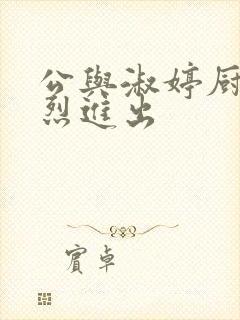 公與淑婷厨
烈進出
賓卓